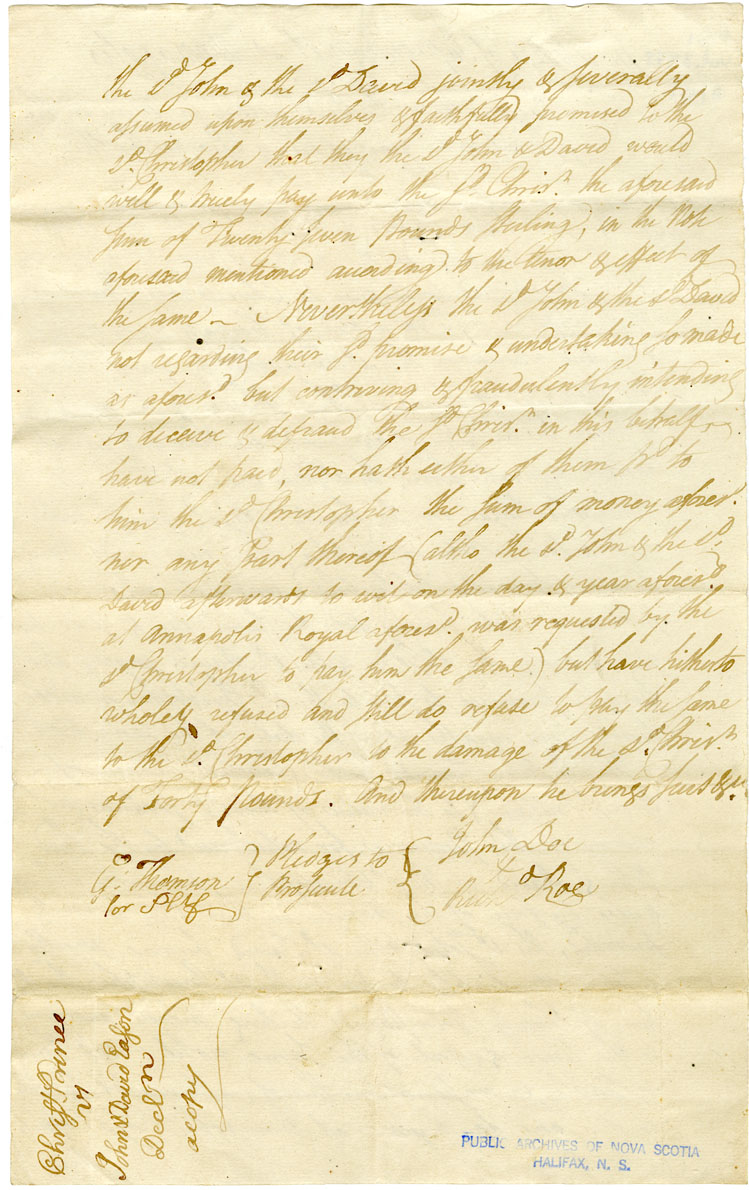 the sd John & the sd David jointly & severally
assumed upon themselves & faithfully promised to the
sd Christopher that they the sd John & David would
well & truely pay unto the sd Chrisr. the aforesaid
sum of Twenty seven Pounds sterling, in the Note
aforesaid mentioned according to the tenor & effect of
the same - Nevertheless the sd John & the sd David
not regarding their sd promise & undertaking so made
as aforesd. but contriving & fraudulently intending
to deceive & defraud the sd Chrisr. in this behalf,
have not paid, nor hath either of them pd to
him the sd Christopher the sum of money aforesd.
nor any Part thereof (altho the sd. John & the sd.
David afterwards to wit on the day & year aforesd.
at Annapolis Royal aforesd. was requested by the
sd Christopher to pay him the same) but have hitherto
wholey refused and still do refuse to pay the same
to the sd. Christopher to the damage of the sd. Chrisr.
of Forty Pounds. And thereupon he brings suit &c.
G. Thomson for Pltf
Pledges to Prosecute
John Doe
&
Richd Roe
Christr Prince
vs
John & David Eason
Decln
a copy
PUBLIC ARCHIVES OF NOVA SCOTIA
HALIFAX, N. S.